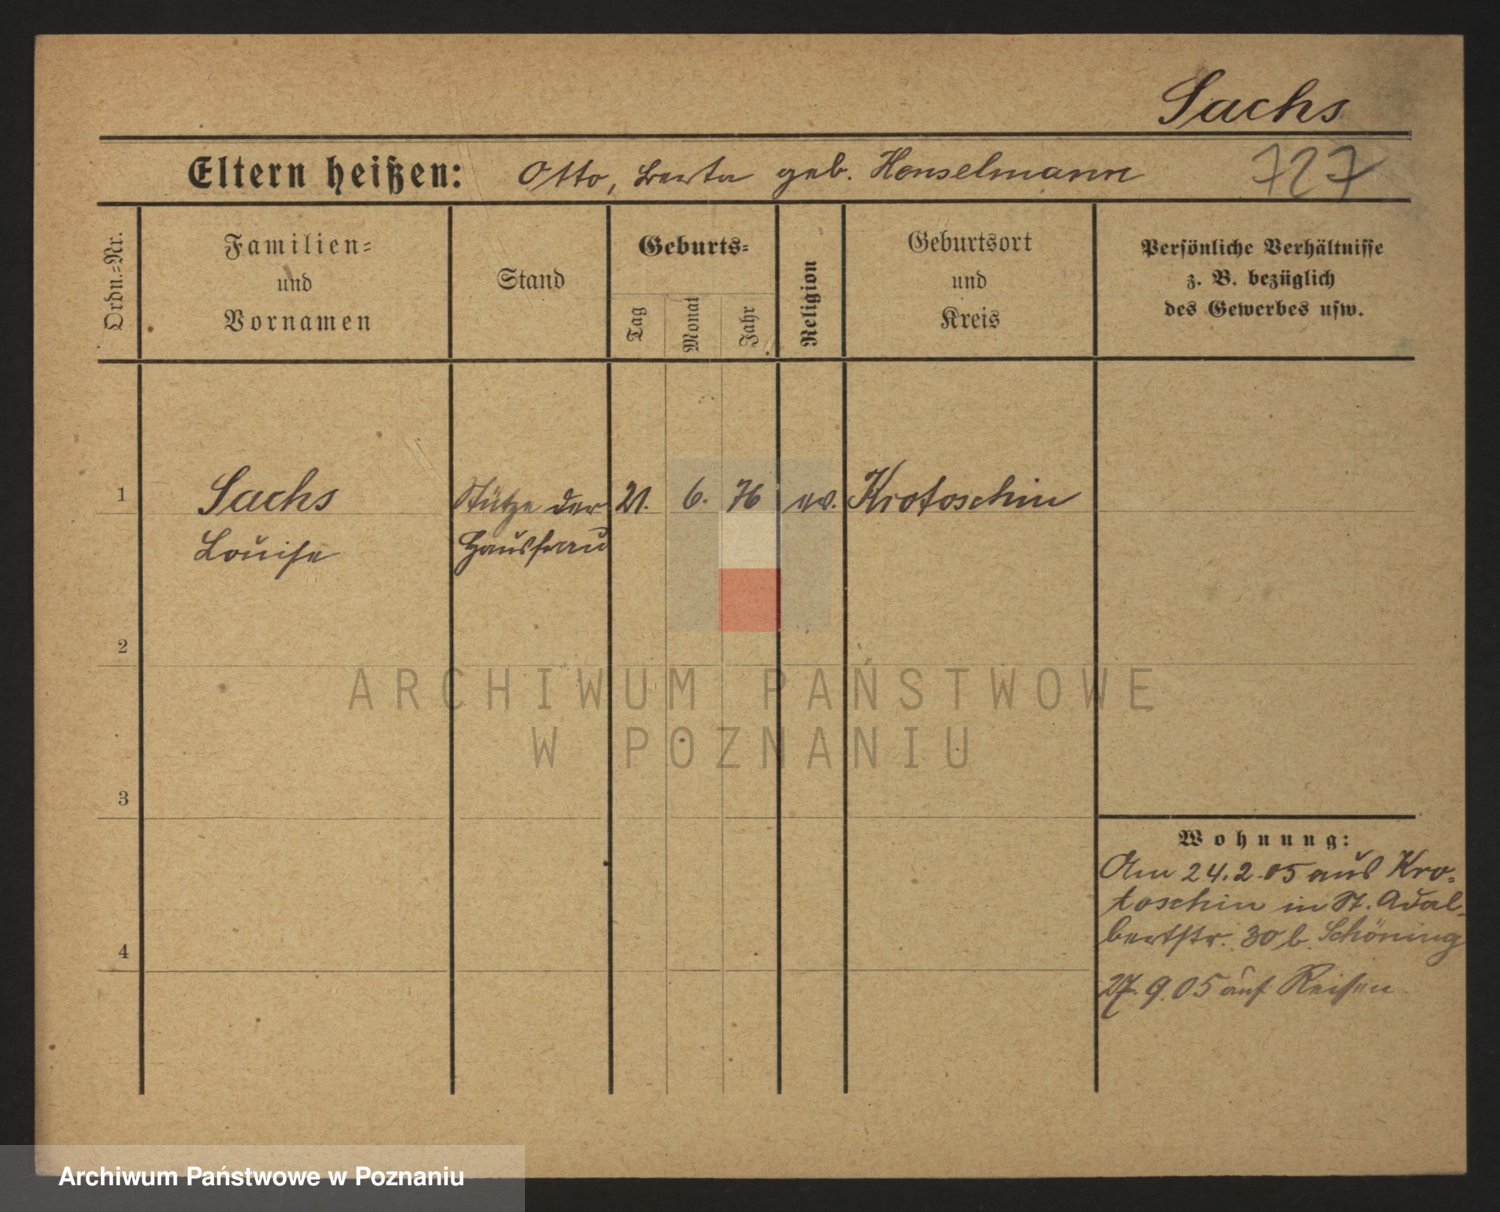 Sachs
Eltern heißen: Otto, Berta geb. Henselmann
727
Ordn.=Nr.
Familien=
und
Vornamen
Stand
Geburts=
Tag
Monat
Jahr
Religion
Geburtsort
und
Kreis
Persönliche Verhältnisse
z. B. bezüglich
des Gewerbes usw.
1 Sachs Stütze der 21. 6. 76 ev. Krotoschin
Louise Hausfrau
2
ARCHIWUM PAŃSTWOWE
W POZNANIU
3
Wohnung:
Am 24.2.05 aus Kro-
toschin in St. Adal-
bertstr. 30 b. Schöning
4
27.9.05 auf Reisen
Archiwum Państwowe w Poznaniu